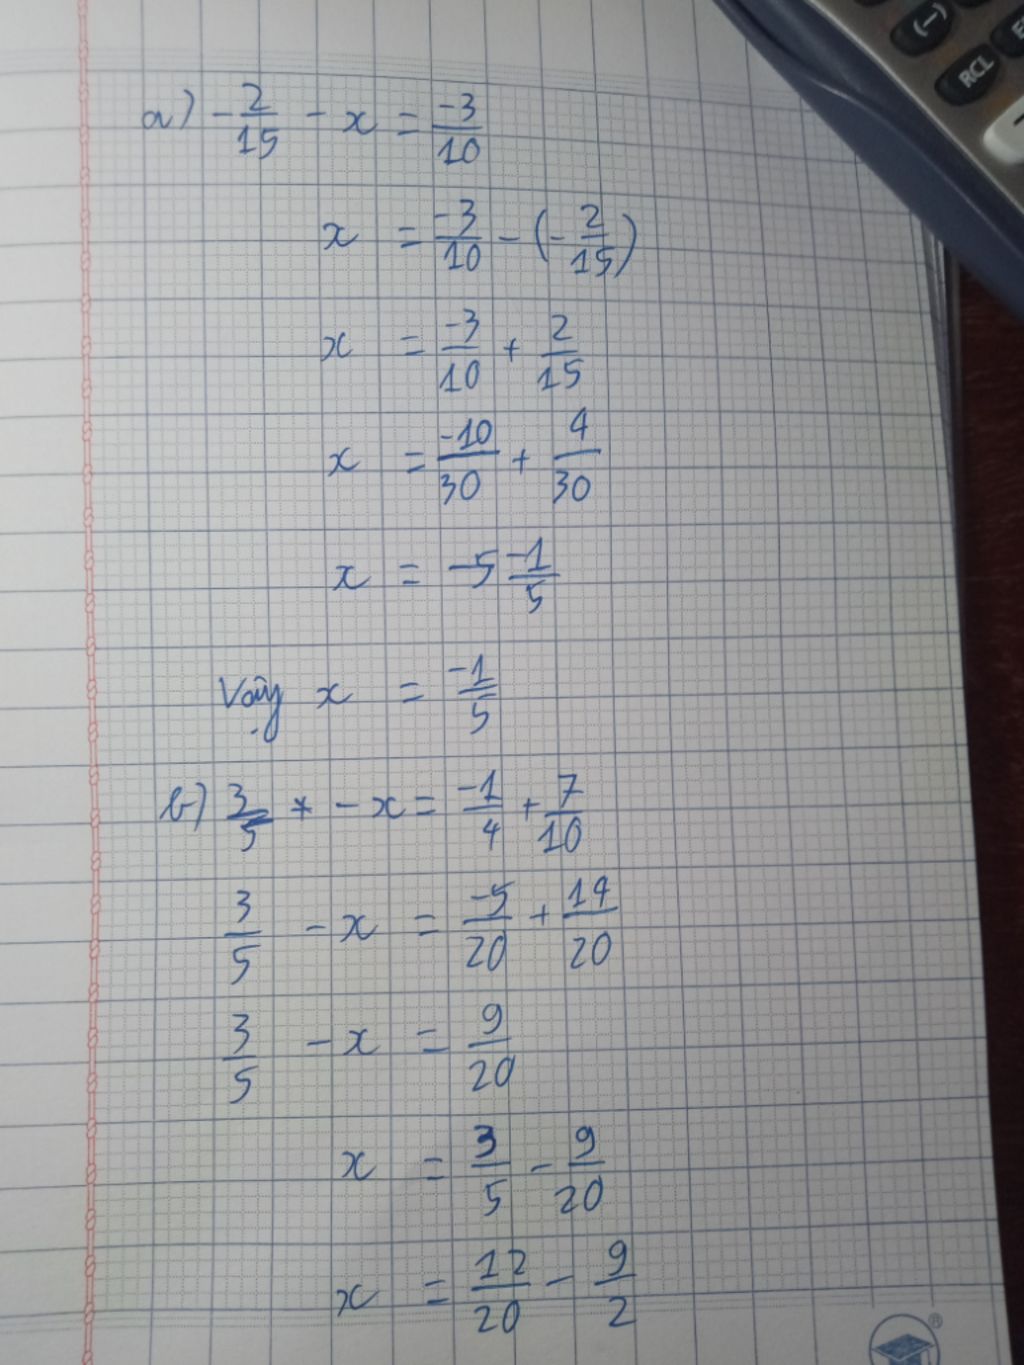 a) -2/15 - x = -3/10
x = -3/10 - (-2/15)
x = -3/10 + 2/15
x = -10/30 + 4/30
x = -5 -1/5
Vậy x = -1/5
b) 3/5 * - x = -1/4 + 7/10
3/5 - x = -5/20 + 14/20
3/5 - x = 9/20
x = 3/5 - 9/20
x = 12/20 - 9/2
(-)
RCL
®